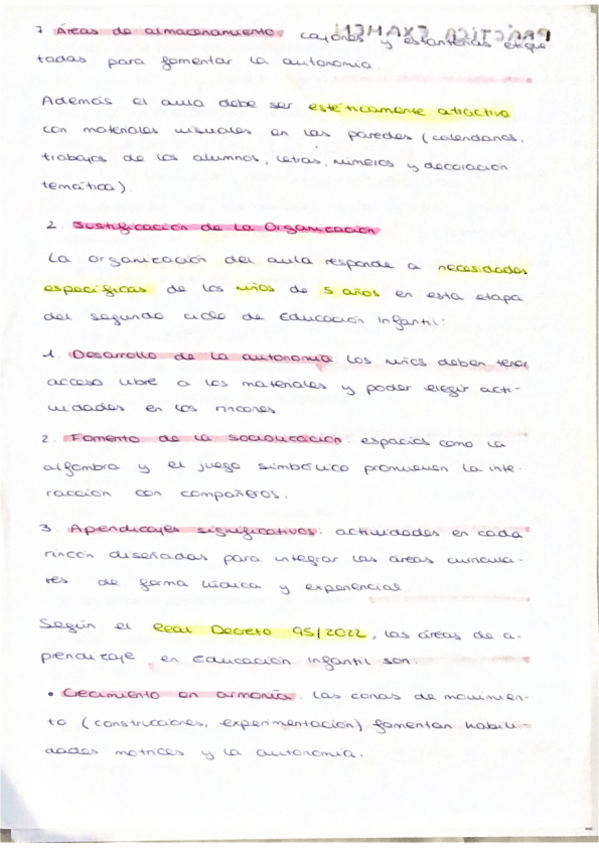 7 Áreas de almacenamiento, cajones y estanterías etique
tadas para fomentar la autonomía.
Además el aula debe ser estéticamente atractiva
con materiales visuales en las paredes (calendarios,
trabajos de los alumnos, letras, números y decoración
temática).
2. Justificación de la Organización
La organización del aula responde a necesidades
específicas de los niños de 5 años en esta etapa
del segundo ciclo de Educación Infantil:
1. Desarrollo de la autonomía: los niños deben tener
acceso libre a los materiales y poder elegir acti-
vidades en los rincones.
2. Fomento de la socialización: espacios como la
alfombra y el juego simbólico promueven la inte-
racción con compañeros.
3. Apendizajes significativos: actividades en cada
rincón diseñadas para integrar las áreas curricula-
res de forma lúdica y experiencial.
Según el Real Decreto 95/2022, las áreas de a-
prendizaje en Educación infantil son:
• Crecimiento en armonía: las zonas de movimien-
to (construcciones, experimentación) fomentan habili-
dades motrices y la autonomía.